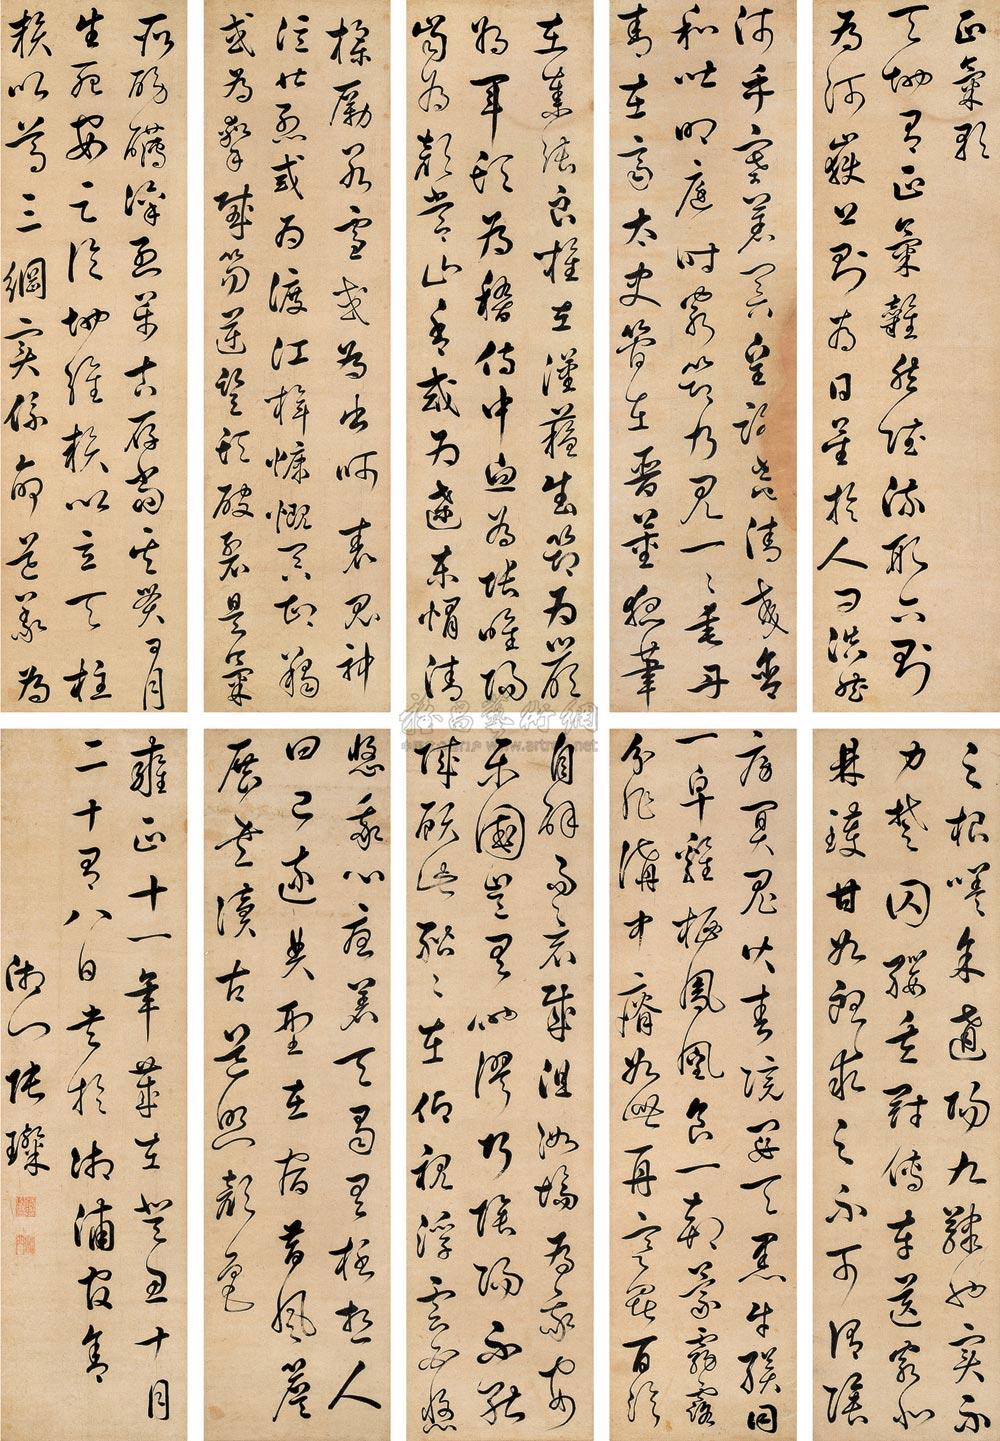 正氣歌
天地有正氣雜然賦流形下則
為河嶽上則為日星於人曰浩然
沛乎塞蒼冥皇路當清夷含
和吐明庭時窮節乃見一〻垂丹
青在齊太史簡在晉董狐筆
在秦張良椎在漢蘇武節為嚴
將軍頭為嵇侍中血為張睢陽
齒為顏常山舌或為遼東帽清
操厲冰雪或為出師表鬼神
泣壯烈或為渡江楫慷慨吞胡羯
或為擊賊笏逆豎頭破裂是氣
所磅礴凜烈萬古存當其貫日月
生死安足論地維賴以立天柱
賴以尊三綱實係命道義為
之根嗟余遘陽九隸也實不
力楚囚纓其冠傳車送窮北
鼎鑊甘如飴求之不可得陰
房冥鬼火春院閟天黑牛驥同
一皁雞棲鳳凰食一朝蒙霧露
分作溝中瘠如此再寒暑百沴
自辟易哀哉沮洳場為我安
樂國豈有他繆巧陰陽不能
賊顧此耿〻在仰視浮雲白悠
悠我心憂蒼天曷有極哲人
日已遠典型在宿昔風簷
展書讀古道照顏色
雍正十一年歲在癸丑十月
二十有八日書於湘浦官舍
湘門張璨